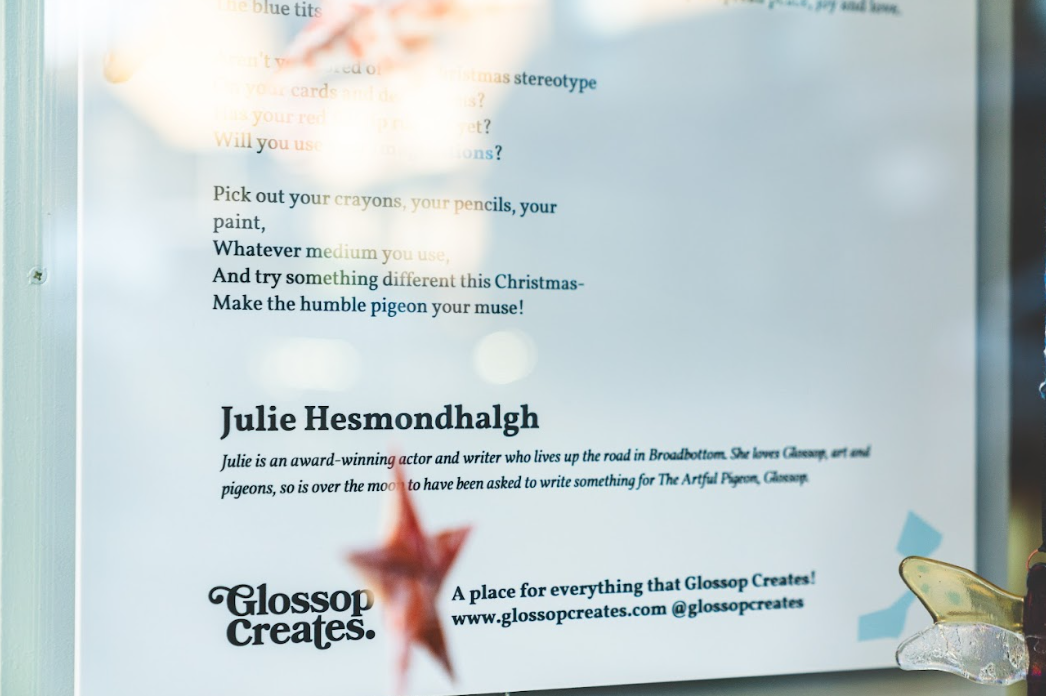 The blue tits
joy and love.
stereotype
cards
your red yet?
Will you
Pick out your crayons, your pencils, your
paint,
Whatever medium you use,
And try something different this Christmas-
Make the humble pigeon your muse!
Julie Hesmondhalgh
Julie is an award-winning actor and writer who lives up the road in Broadbottom. She loves Glossop, art and
pigeons, so is over the moon to have been asked to write something for The Artful Pigeon, Glossop.
Glossop
Creates.
A place for everything that Glossop Creates!
www.glossopcreates.com @glossopcreates